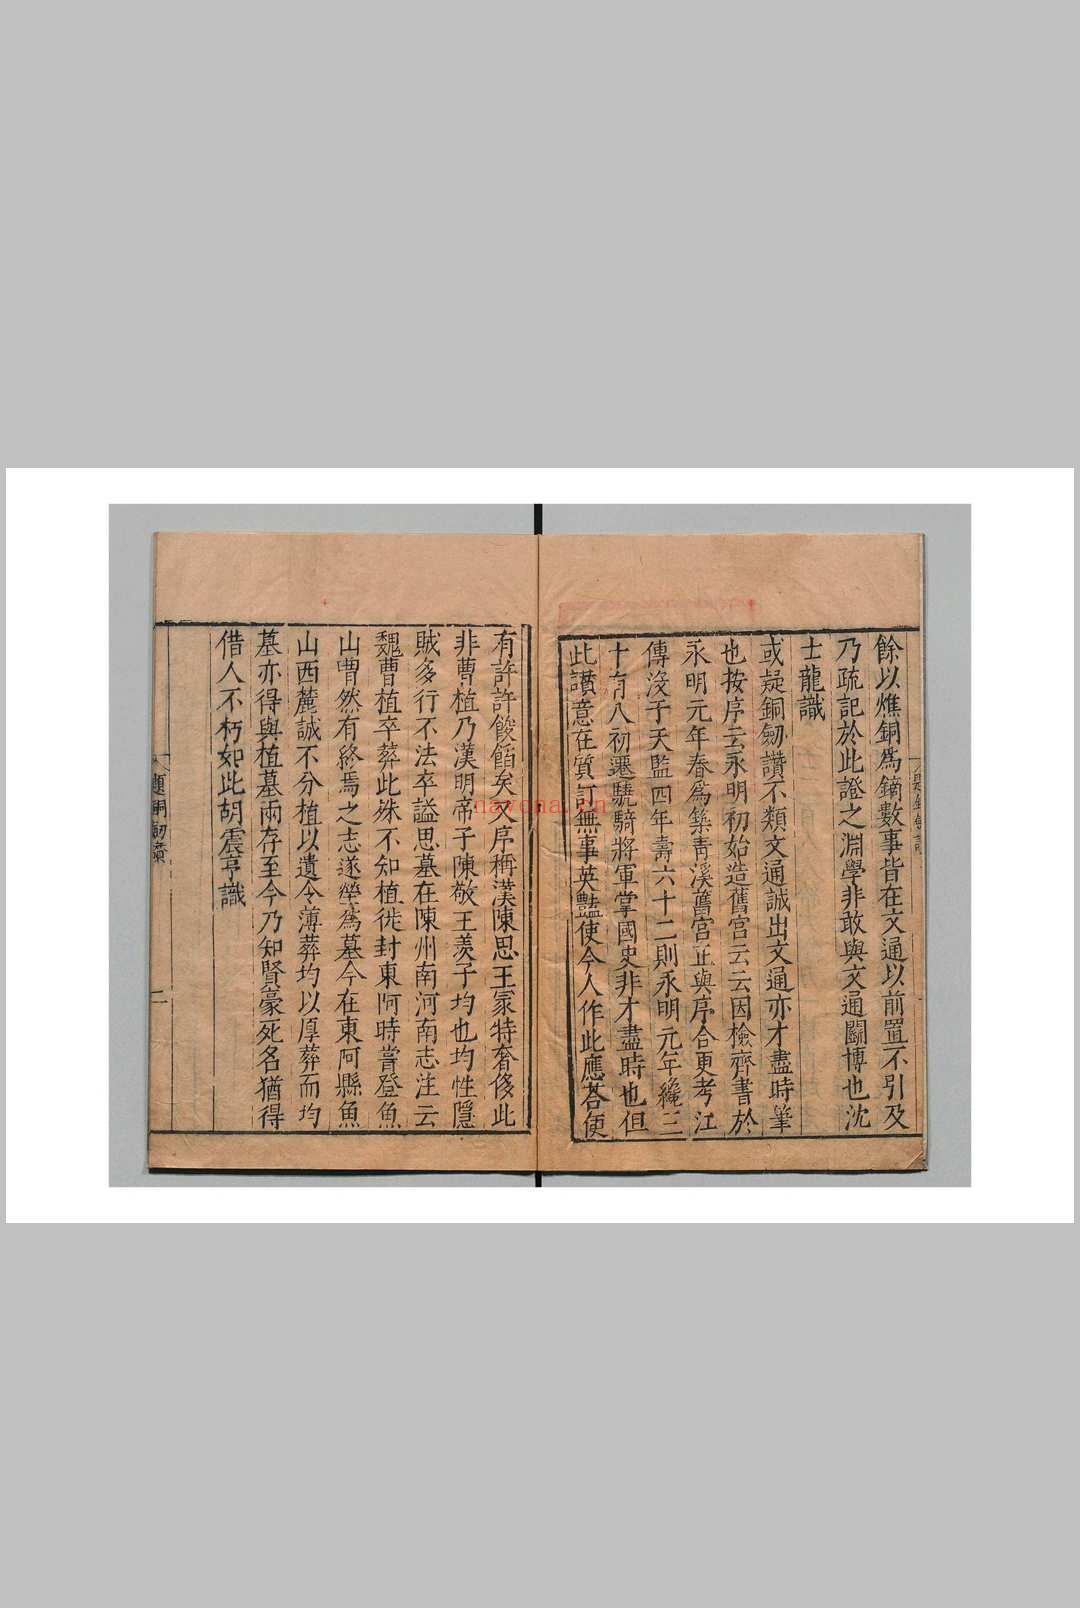 餘以爑銅爲鏑數事皆在文通以前置不引及
乃疏記於此證之淵學非敢與文通鬭博也沈
士龍識
或疑銅劒讚不類文通誠出文通亦才盡時筆
也按序云永明初始造舊宮云云因檢齊書於
永明元年春爲築靑溪舊宮正與序合更考江
傳沒于天監四年壽六十二則永明元年纔三
十有八初遷驍騎將軍掌國史非才盡時也但
此讃意在質訂無事英豔使今人作此應荅便
有許許餕餡矣又序稱漢陳思王冢特奢侈此
非曹植乃漢明帝子陳敬王羨子均也均性隱
賊多行不法卒謚思墓在陳州南河南志注云
魏曹植卒葬此殊不知植徙封東阿時嘗登魚
山喟然有終焉之志遂塋爲墓今在東阿縣魚
山西麓誠不分植以遺令薄葬均以厚葬而均
墓亦得與植墓兩存至今乃知賢豪死名猶得
借人不朽如此胡震亨識
題銅劒讃
二
navona.cn